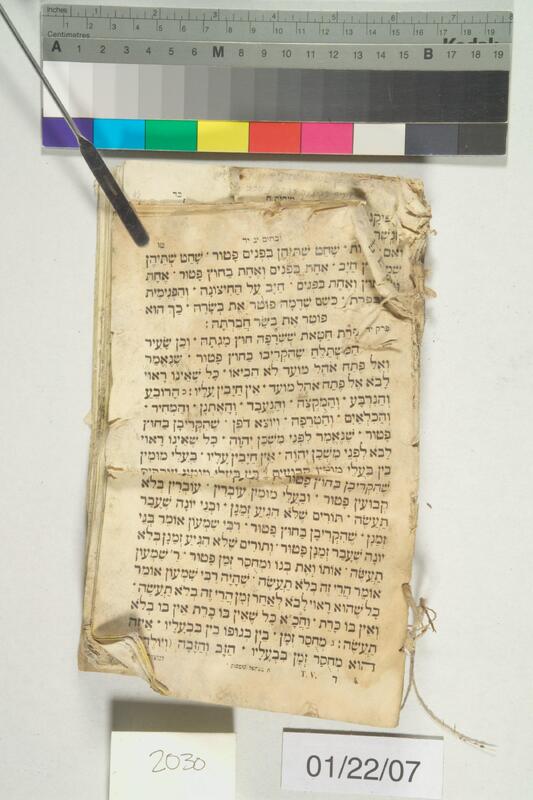 inches
Centimetres
A 1 2 3 4 5 6 M 8 9 10 11 12 13 14 15 B 17 18 19
זבחים יג יד
שחט שתיהן בפנים פטור · שחט שתיהן
חייב · אחת בפנים ואחת בחוץ פטור · אחת
ואחת בפנים · חייב על החיצונה · והפנימית
מכפרת · כשם שדמה פוטר את בשרה · כך הוא
פוטר את בשר חברתה :
פרק יד פרת חטאת ששרפה חוץ מגתה · וכן שעיר
המשתלח שהקריבו בחוץ פטור · שנאמר
ואל פתח אהל מועד לא הביאו · כל שאינו ראוי
לבא אל פתח אהל מועד · אין חייבין עליו : ב הרובע
והנרבע · והמקצה · והנעבד · והאתנן · והמחיר ·
והכלאים · והטרפה · ויוצא דפן · שהקריבן בחוץ
פטור · שנאמר לפני משכן יהוה · כל שאינו ראוי
לבא לפני משכן יהוה · אין חייבין עליו · בעלי מומין
בין בעלי מומין קבועים
שהקריבן בחוץ פטור
קבועין פטור · ובעלי מומין עוברין · עוברין בלא
תעשה · תורים שלא הגיע זמנן · ובני יונה שעבר
זמנן · שהקריבן בחוץ פטור · רבי שמעון אומר בני
יונה שעבר זמנן פטור · ותורים שלא הגיע זמנן בלא
תעשה · אותו ואת בנו ומחסר זמן פטור · ר' שמעון
אומר הרי זה בלא תעשה · שהיה רבי שמעון אומר
כל שהוא ראוי לבא לאחר זמן הרי זה בלא תעשה ·
ואין בו כרת · והכ"א כל שאין בו כרת אין בו בלא
תעשה : ג מחסר זמן · בין בגופו בין בבעליו · איזה
הוא מחסר זמן בבעליו · הזב והזבה
T. V. ד
2030
01/22/07